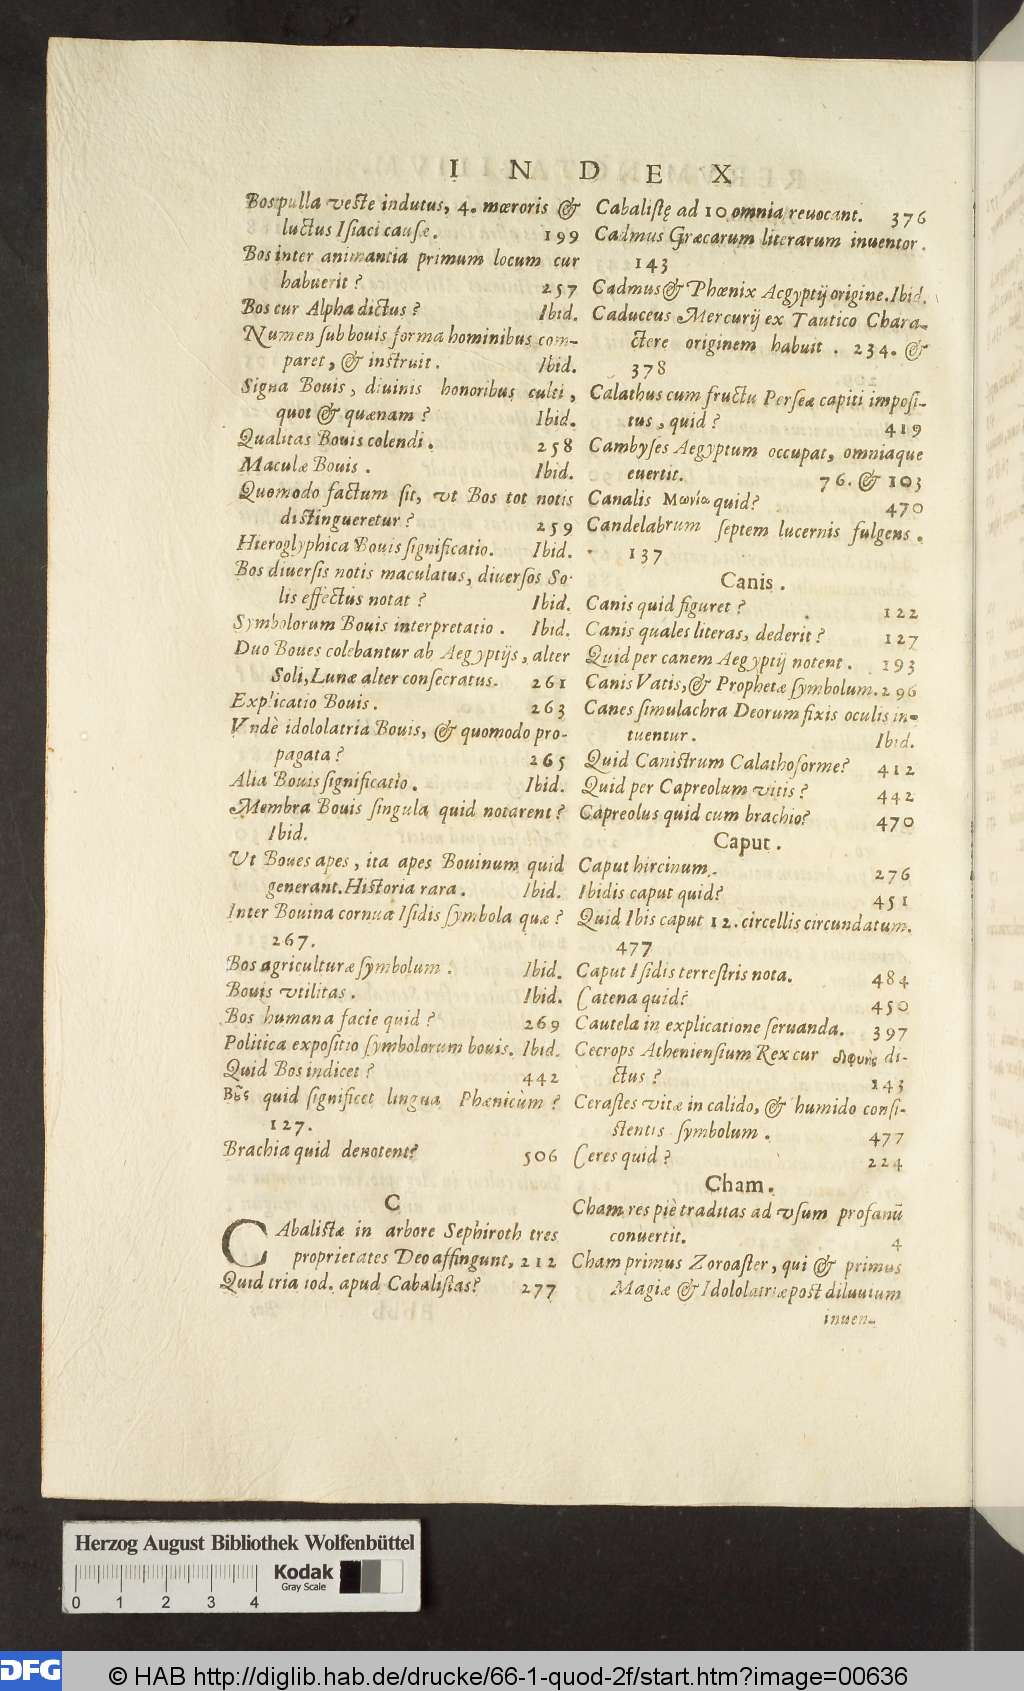 INDEX
Bos pulla veste indutus, 4. mœroris &
luctus Isiaci causæ. 199
Bos inter animantia primum locum cur
habuerit? 257
Bos cur Alpha dictus? Ibid.
Numen sub bouis forma hominibus com-
paret, & instruit. Ibid.
Signa Bouis, diuinis honoribus culti,
quot & quænam? Ibid.
Qualitas Bouis colendi. 258
Maculæ Bouis. Ibid.
Quomodo factum sit, vt Bos tot notis
distingueretur? 259
Hieroglyphica Bouis significatio. Ibid.
Bos diuersis notis maculatus, diuersos So-
lis effectus notat? Ibid.
Symbolorum Bouis interpretatio. Ibid.
Duo Boues colebantur ab Aegyptijs, alter
Soli, Lunæ alter consecratus. 261
Explicatio Bouis. 263
Vndè idololatria Bouis, & quomodo pro-
pagata? 265
Alia Bouis significatio. Ibid.
Membra Bouis singula quid notarent?
Ibid.
Vt Boues apes, ita apes Bouinum quid
generant. Historia rara. Ibid.
Inter Bouina cornua Isidis symbola quæ?
267.
Bos agriculturæ symbolum. Ibid.
Bouis vtilitas. Ibid.
Bos humana facie quid? 269
Politica expositio symbolorum bouis. Ibid.
Quid Bos indicet? 442
quid significet lingua Phœnicùm?
127.
Brachia quid denotent? 506
C
CAbalistæ in arbore Sephiroth tres
proprietates Deo affingunt, 212
Quid tria iod. apud Cabalistas? 277
Cabalistę ad 10 omnia reuocant. 376
Cadmus Græcarum literarum inuentor.
143
Cadmus & Phœnix Aegyptij origine. Ibid.
Caduceus Mercurij ex Tautico Chara-
ctere originem habuit. 234. &
378
Calathus cum fructu Perseæ capiti imposi-
tus, quid? 419
Cambyses Aegyptum occupat, omniaque
euertit. 76. & 103
Canalis Μωνία quid? 470
Candelabrum septem lucernis fulgens.
137
Canis.
Canis quid figuret? 122
Canis quales literas, dederit? 127
Quid per canem Aegyptij notent. 193
Canis Vatis, & Prophetæ symbolum. 296
Canes simulachra Deorum fixis oculis in-
tuentur. Ibid.
Quid Canistrum Calathoforme? 412
Quid per Capreolum vitis? 442
Capreolus quid cum brachio? 470
Caput.
Caput hircinum. 276
Ibidis caput quid? 451
Quid Ibis caput 12. circellis circundatum.
477
Caput Isidis terrestris nota. 484
Catena quid? 450
Cautela in explicatione seruanda. 397
Cecrops Atheniensium Rex cur διφυὴς di-
ctus? 143
Cerastes vitæ in calido, & humido consi-
stentis symbolum. 477
Ceres quid? 224
Cham.
Cham res piè traditas ad vsum profanū
conuertit. 4
Cham primus Zoroaster, qui & primus
Magiæ & Idololatriæ post diluuium
inuen-
Herzog August Bibliothek Wolfenbüttel
Kodak
Gray Scale
0 1 2 3 4
DFG
© HAB http://diglib.hab.de/drucke/66-1-quod-2f/start.htm?image=00636